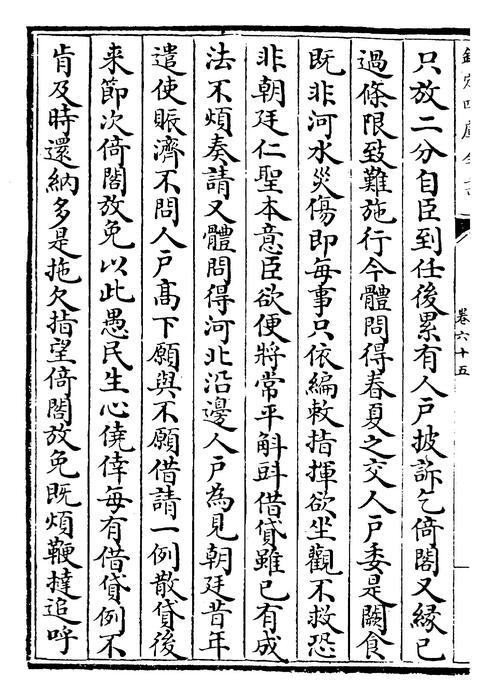 欽定四庫全書
卷六十五
只放二分自臣到任後累有人戶披訴乞倚閣又縁已
過條限致難施行今體問得春夏之交人戶委是闕食
既非河水災傷即每事只依編敕指揮欲坐觀不救恐
非朝廷仁聖本意臣欲便將常平斛㪷借貸雖已有成
法不煩奏請又體問得河北沿邊人戶為見朝廷昔年
遣使賑濟不問人戶髙下願與不願借請一例散貸後
来節次倚閣放免以此愚民生心僥倖每有借貸例不
肯及時還納多是拖欠指望倚閣放免既煩鞭撻追呼